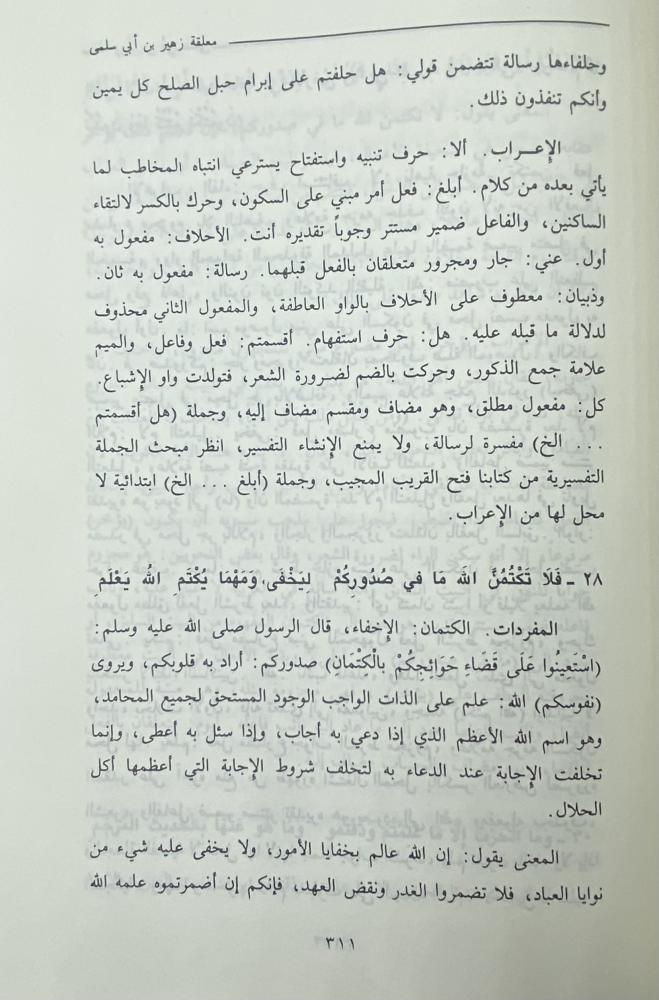 معلقة زهير بن أبي سلمى
وحلفاءها رسالة تتضمن قولي: هل حلفتم على إبرام حبل الصلح كل يمين
وأنكم تنفذون ذلك.
الإعـــراب. ألا: حرف تنبيه واستفتاح يسترعي انتباه المخاطب لما
يأتي بعده من كلام. أبلغ: فعل أمر مبني على السكون، وحرك بالكسر لالتقاء
الساكنين، والفاعل ضمير مستتر وجوباً تقديره أنت. الأحلاف: مفعول به
أول. عني: جار ومجرور متعلقان بالفعل قبلهما. رسالة: مفعول به ثان.
وذبيان: معطوف على الأحلاف بالواو العاطفة، والمفعول الثاني محذوف
لدلالة ما قبله عليه. هل: حرف استفهام. أقسمتم: فعل وفاعل، والميم
علامة جمع الذكور، وحركت بالضم لضرورة الشعر، فتولدت واو الإشباع.
كل: مفعول مطلق، وهو مضاف ومقسم مضاف إليه، وجملة (هل أقسمتم
... الخ) مفسرة لرسالة، ولا يمنع الإنشاء التفسير، انظر مبحث الجملة
التفسيرية من كتابنا فتح القريب المجيب، وجملة (أبلغ ... الخ) ابتدائية لا
محل لها من الإعراب.
٢٨ - فَلَا تَكْتُمُنَّ الله مَا في صُدُورِكُمْ لِيَخْفَى، وَمَهْمَا يُكْتَمِ الله يَعْلَمِ
المفردات. الكتمان: الإخفاء، قال الرسول صلى الله عليه وسلم:
(اسْتَعِينُوا عَلَى قَضَاءِ حَوَائِجِكُمْ بالْكِتْمَانِ) صدوركم: أراد به قلوبكم، ويروى
(نفوسكم) الله: علم على الذات الواجب الوجود المستحق لجميع المحامد،
وهو اسم الله الأعظم الذي إذا دعي به أجاب، وإذا سئل به أعطى، وإنما
تخلفت الإجابة عند الدعاء به لتخلف شروط الإجابة التي أعظمها أكل
الحلال.
المعنى يقول: إن الله عالم بخفايا الأمور، ولا يخفى عليه شيء من
نوايا العباد، فلا تضمروا الغدر ونقض العهد، فإنكم إن أضمرتموه علمه الله
٣١١